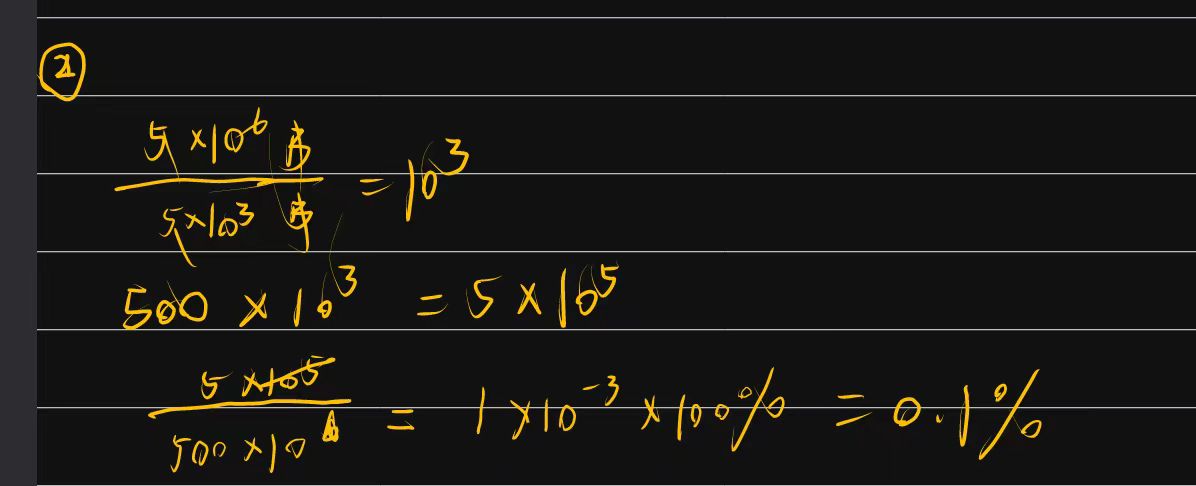 ②
5 × 10⁶ / 5 × 10³ = 10³
500 × 10³ = 5 × 10⁵
5 × 10⁵ / 500 × 10⁶ = 1 × 10⁻³ × 100% = 0.1%